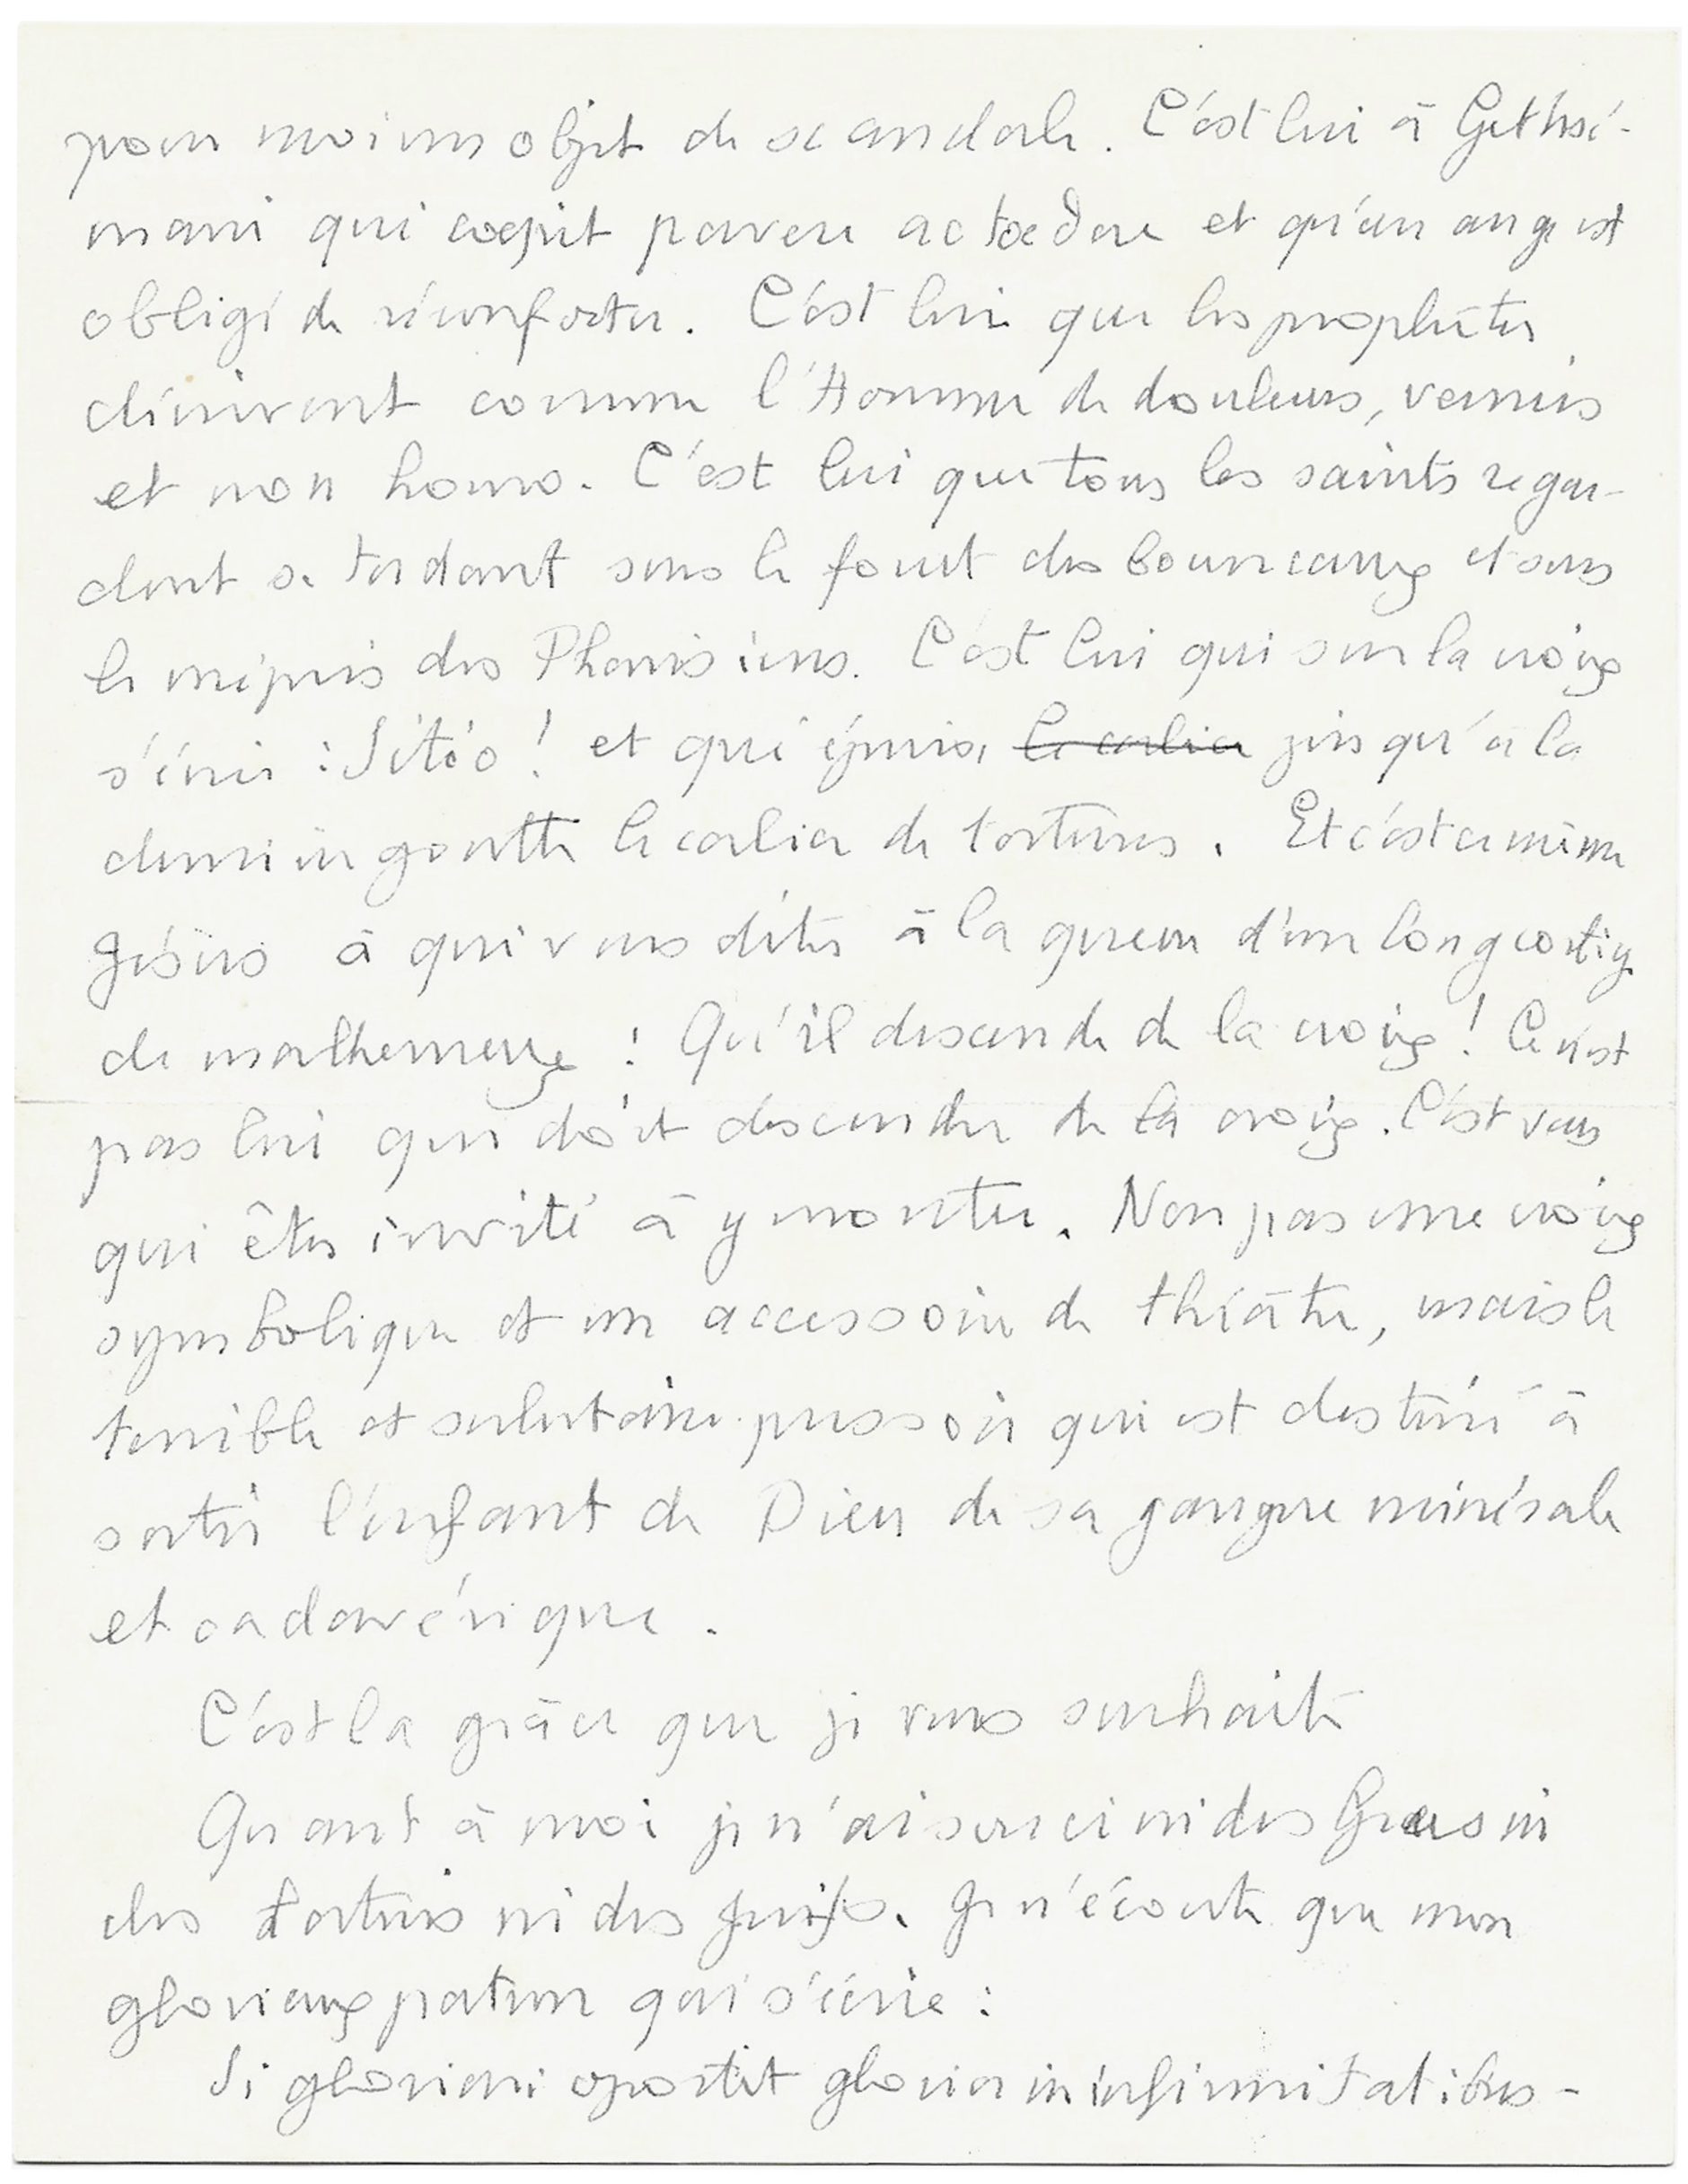 pour moi un objet de scandale. C'est lui à Gethsé-
mani qui coepit pavere ac toedere et qu'un ange est
obligé de réconforter. C'est lui que les prophètes
décrivent comme l'Homme de douleurs, vermis
et non homo. C'est lui que tous les saints regar-
dent se tordant sous le fouet des bourreaux et sous
le mépris des Pharisiens. C'est lui qui sur la croix
s'écrie : Sitio ! et qui épuisa le calice jusqu'à la
dernière goutte le calice de tortures. Et c'est ce même
Jésus à qui vous dites à la queue d'un long cortège
de malheureux : Qu'il descende de la croix ! Ce n'est
pas lui qui doit descendre de la croix. C'est vous
qui êtes invité à y monter. Non pas une croix
symbolique et un accessoire de théâtre, mais le
terrible et salutaire pressoir qui est destiné à
sortir l'enfant de Dieu de sa gangue minérale
et cadavérique.
C'est la grâce que je vous souhaite
Quant à moi je n'ai souci ni des Grecs ni
des ni des Juifs. Je n'écoute que mon
glorieux patron qui s'écrie :
Si gloriari oportet glorior in infirmitatibus -